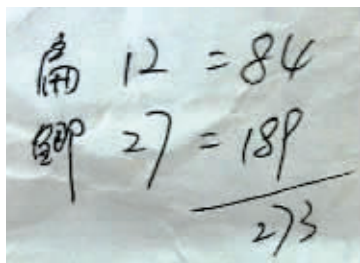 扁 12 = 84
鲫 27 = 189
273